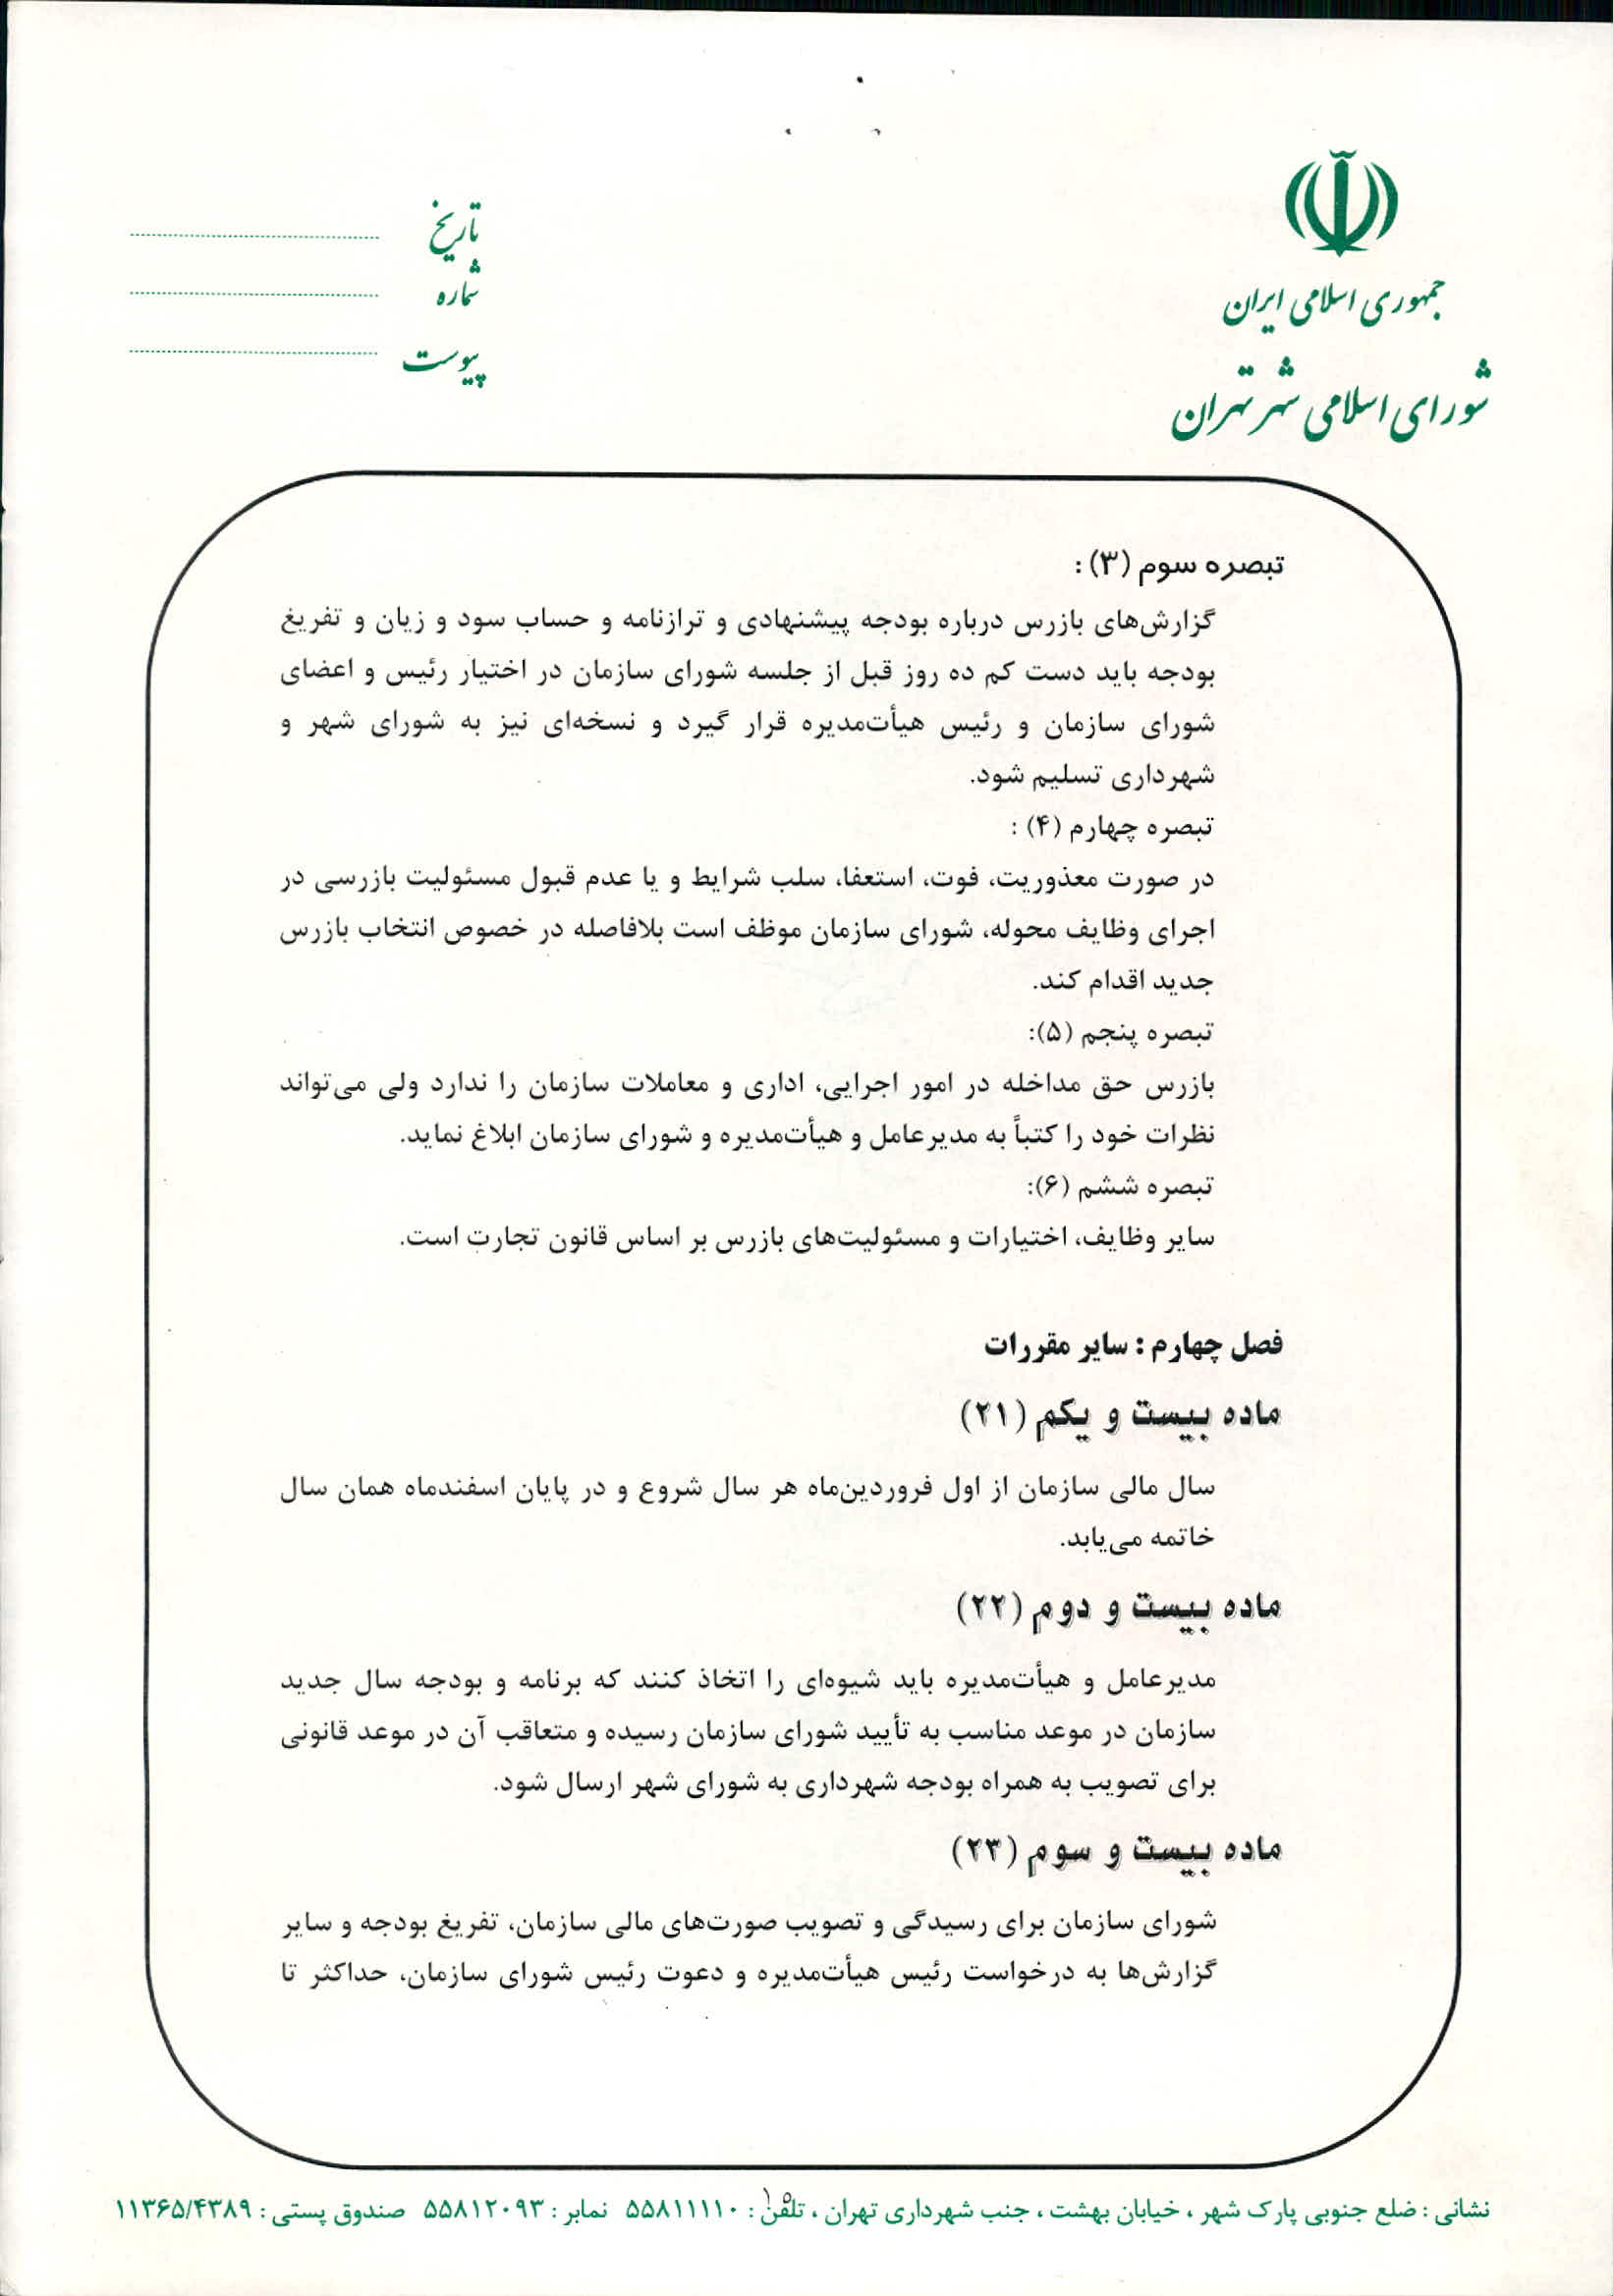 جمهوری اسلامی ایران
شورای اسلامی شهر تهران
تاریخ
شماره
پیوست
تبصره سوم (۳) :
گزارش‌های بازرس درباره بودجه پیشنهادی و ترازنامه و حساب سود و زیان و تفریغ
بودجه باید دست کم ده روز قبل از جلسه شورای سازمان در اختیار رئیس و اعضای
شورای سازمان و رئیس هیأت‌مدیره قرار گیرد و نسخه‌ای نیز به شورای شهر و
شهرداری تسلیم شود.
تبصره چهارم (۴) :
در صورت معذوریت، فوت، استعفا، سلب شرایط و یا عدم قبول مسئولیت بازرسی در
اجرای وظایف محوله، شورای سازمان موظف است بلافاصله در خصوص انتخاب بازرس
جدید اقدام کند.
تبصره پنجم (۵):
بازرس حق مداخله در امور اجرایی، اداری و معاملات سازمان را ندارد ولی می‌تواند
نظرات خود را کتباً به مدیرعامل و هیأت‌مدیره و شورای سازمان ابلاغ نماید.
تبصره ششم (۶):
سایر وظایف، اختیارات و مسئولیت‌های بازرس بر اساس قانون تجارت است.
فصل چهارم : سایر مقررات
ماده بیست و یکم (۲۱)
سال مالی سازمان از اول فروردین‌ماه هر سال شروع و در پایان اسفندماه همان سال
خاتمه می‌یابد.
ماده بیست و دوم (۲۲)
مدیرعامل و هیأت‌مدیره باید شیوه‌ای را اتخاذ کنند که برنامه و بودجه سال جدید
سازمان در موعد مناسب به تأیید شورای سازمان رسیده و متعاقب آن در موعد قانونی
برای تصویب به همراه بودجه شهرداری به شورای شهر ارسال شود.
ماده بیست و سوم (۲۳)
شورای سازمان برای رسیدگی و تصویب صورت‌های مالی سازمان، تفریغ بودجه و سایر
گزارش‌ها به درخواست رئیس هیأت‌مدیره و دعوت رئیس شورای سازمان، حداکثر تا
۱۵
نشانی : ضلع جنوبی پارک شهر ، خیابان بهشت ، جنب شهرداری تهران ، تلفن : ۵۵۸۱۱۱۱۰ نمابر : ۵۵۸۱۲۰۹۳ صندوق پستی : ۱۱۳۶۵/۴۳۸۹